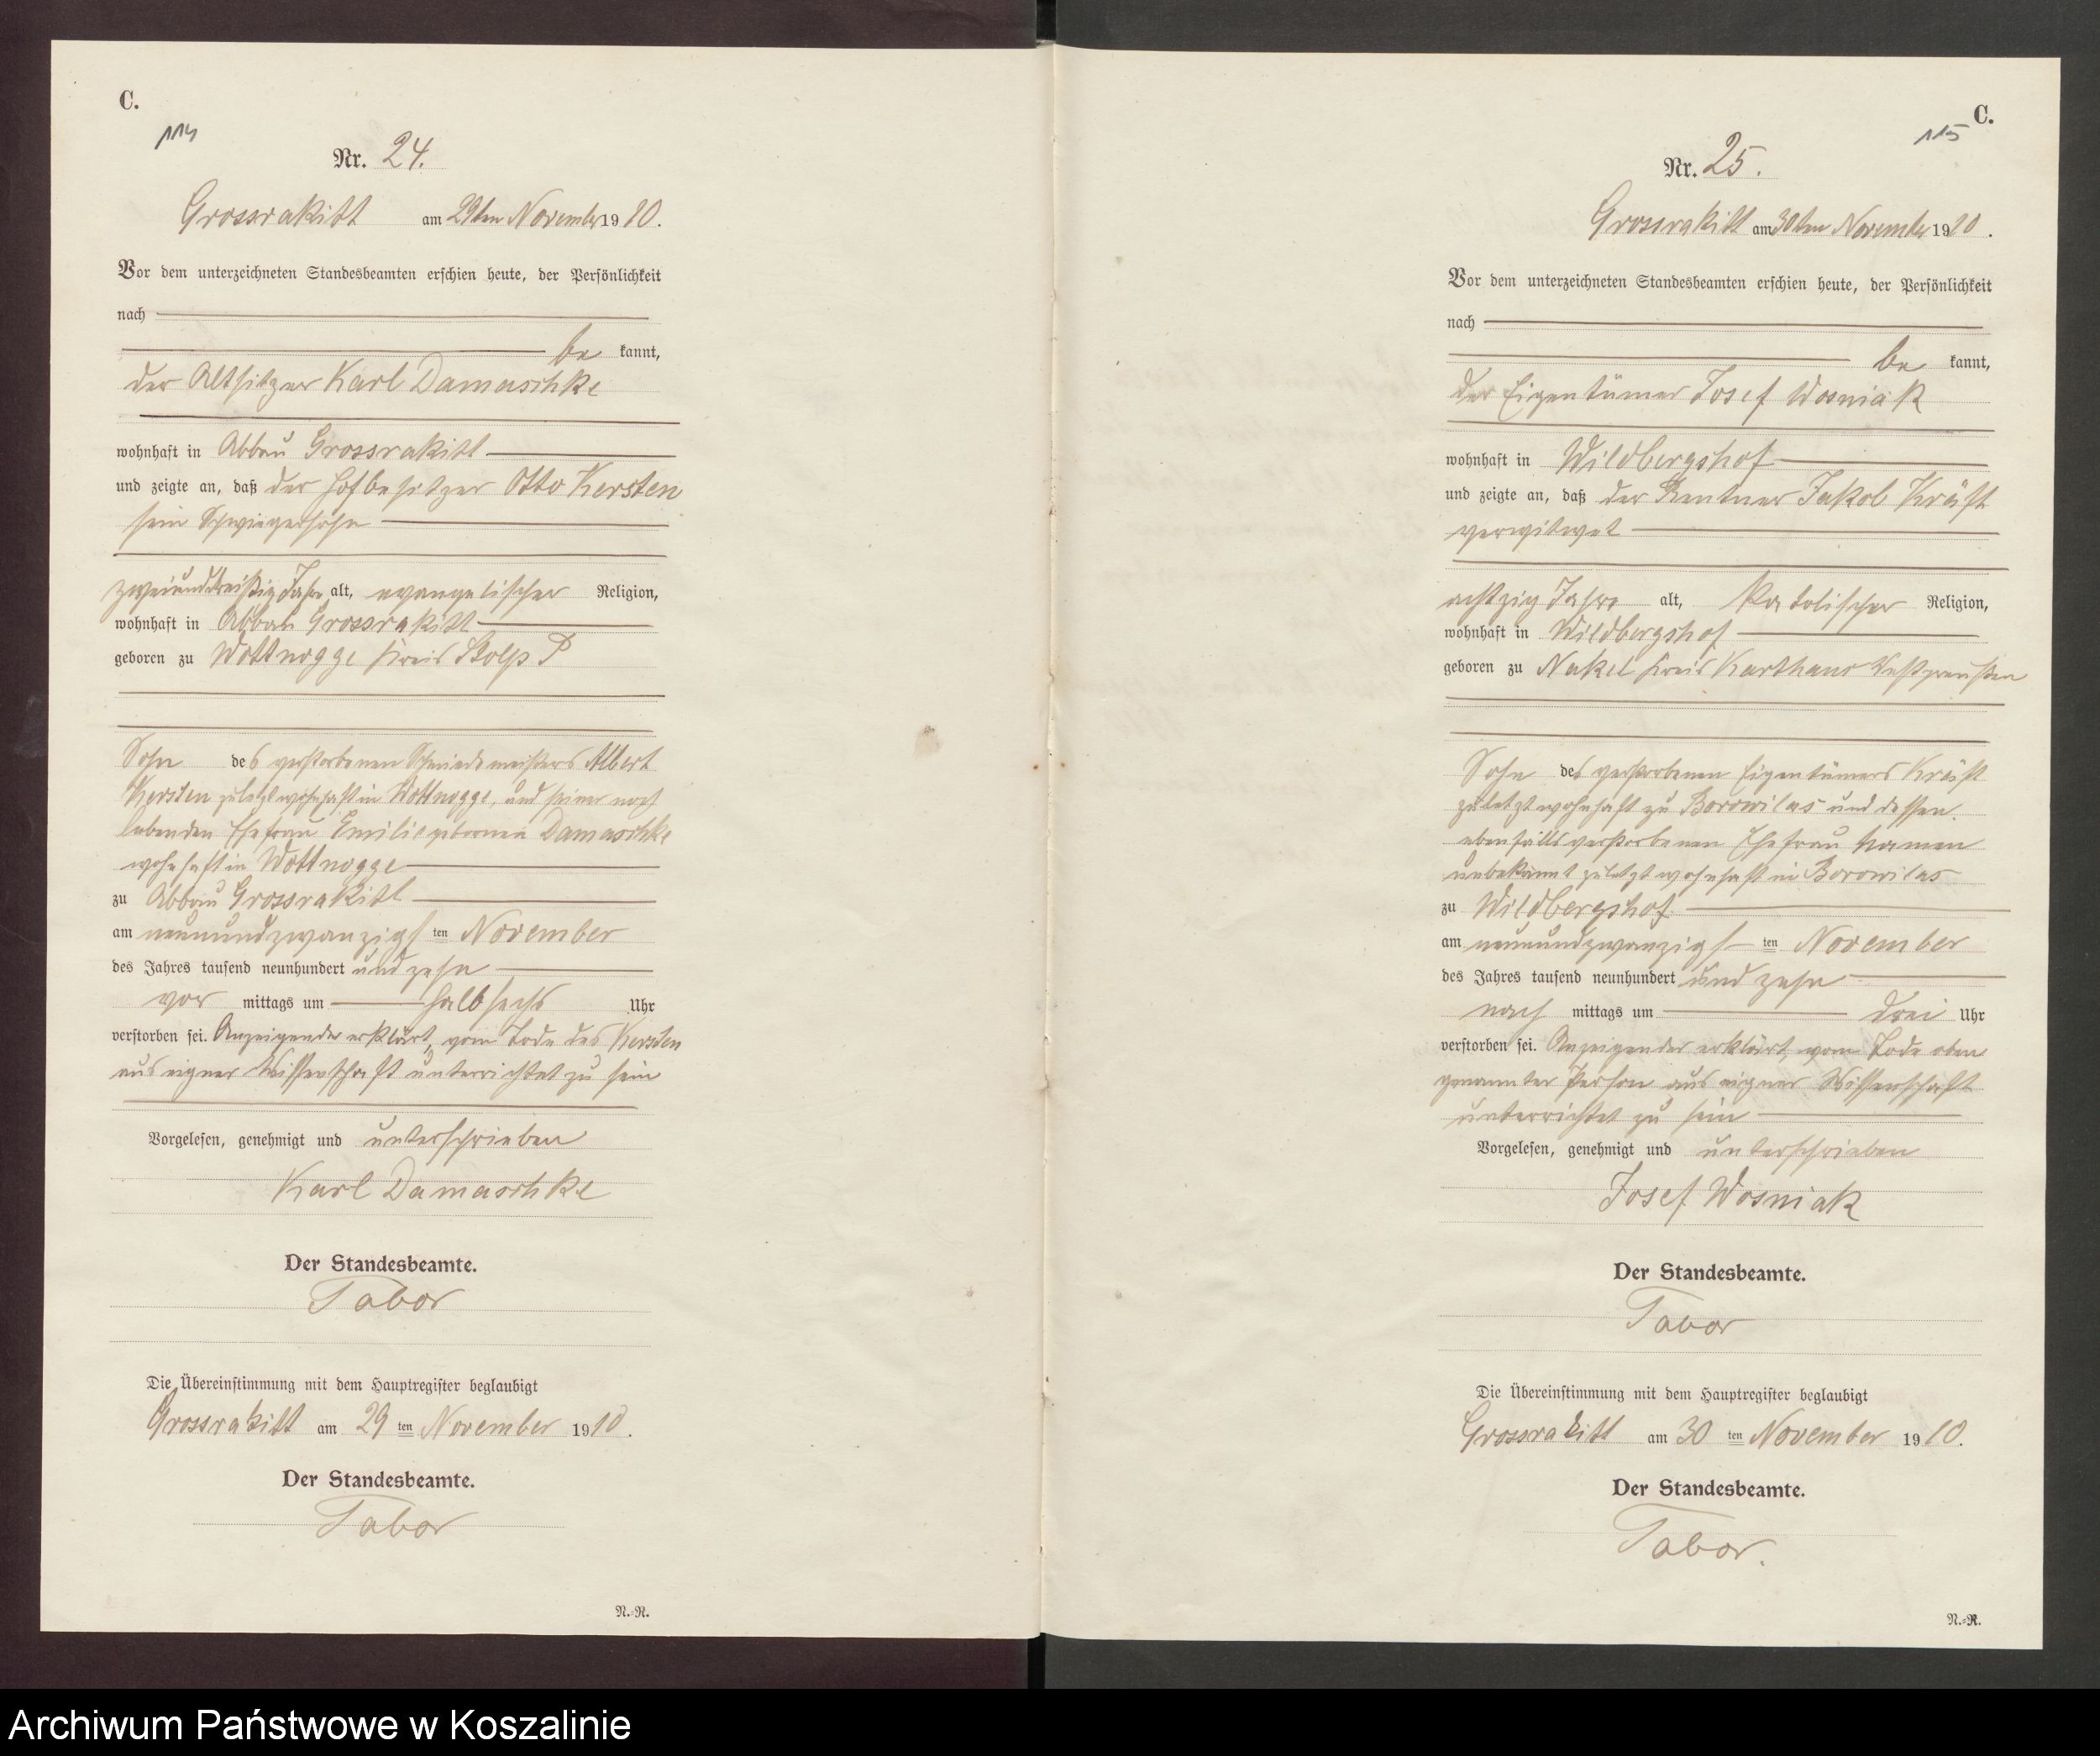 C.
114
Nr. 24.
Grossrakitt am 29ten November 1910.
Vor dem unterzeichneten Standesbeamten erschien heute, der Persönlichkeit
nach
be kannt,
der Altsitzer Karl Damaschke
wohnhaft in Abbau Grossrakitt
und zeigte an, daß der Hofbesitzer Otto Kersten
sein Schwiegersohn
zweiunddreißig Jahre alt, evangelischer Religion,
wohnhaft in Abbau Grossrakitt
geboren zu Wottnogge Kreis Stolp P
Sohn des verstorbenen Schmiedemeisters Albert
Kersten zuletzt wohnhaft in Wottnogge, und seiner noch
lebenden Ehefrau Emilie geborenen Damaschke
wohnhaft in Wottnogge
zu Abbau Grossrakitt
am neunundzwanzigs ten November
des Jahres tausend neunhundert und zehn
vor mittags um halb sechs Uhr
verstorben sei. Anzeigender erklärt, vom Tode des Kersten
aus eigner Wissenschaft unterrichtet zu sein
Vorgelesen, genehmigt und unterschrieben
Karl Damaschke
Der Standesbeamte.
Tabor
Die Übereinstimmung mit dem Hauptregister beglaubigt
Grossrakitt am 29 ten November 1910.
Der Standesbeamte.
Tabor
N.-R.
C.
115
Nr. 25.
Grossrakitt am 30ten November 1910.
Vor dem unterzeichneten Standesbeamten erschien heute, der Persönlichkeit
nach
be kannt,
der Eigentümer Josef Wosniak
wohnhaft in Wildbergshof
und zeigte an, daß der Rentner Jakob Kräft
verwitwet
achtzig Jahre alt, katolischer Religion,
wohnhaft in Wildbergshof
geboren zu Nakel Kreis Karthaus Westpreußen
Sohn des verstorbenen Eigentümers Kräft
zuletzt wohnhaft zu Borowilas und dessen
ebenfalls verstorbenen Ehefrau Namen
unbekannt zuletzt wohnhaft in Borowilas
zu Wildbergshof
am neunundzwanzigs ten November
des Jahres tausend neunhundert und zehn
nach mittags um drei Uhr
verstorben sei. Anzeigender erklärt, vom Tode oben
genannter Person aus eigner Wissenschaft
unterrichtet zu sein
Vorgelesen, genehmigt und unterschrieben
Josef Wosniak
Der Standesbeamte.
Tabor
Die Übereinstimmung mit dem Hauptregister beglaubigt
Grossrakitt am 30 ten November 1910.
Der Standesbeamte.
Tabor.
N.-R.
Archiwum Państwowe w Koszalinie